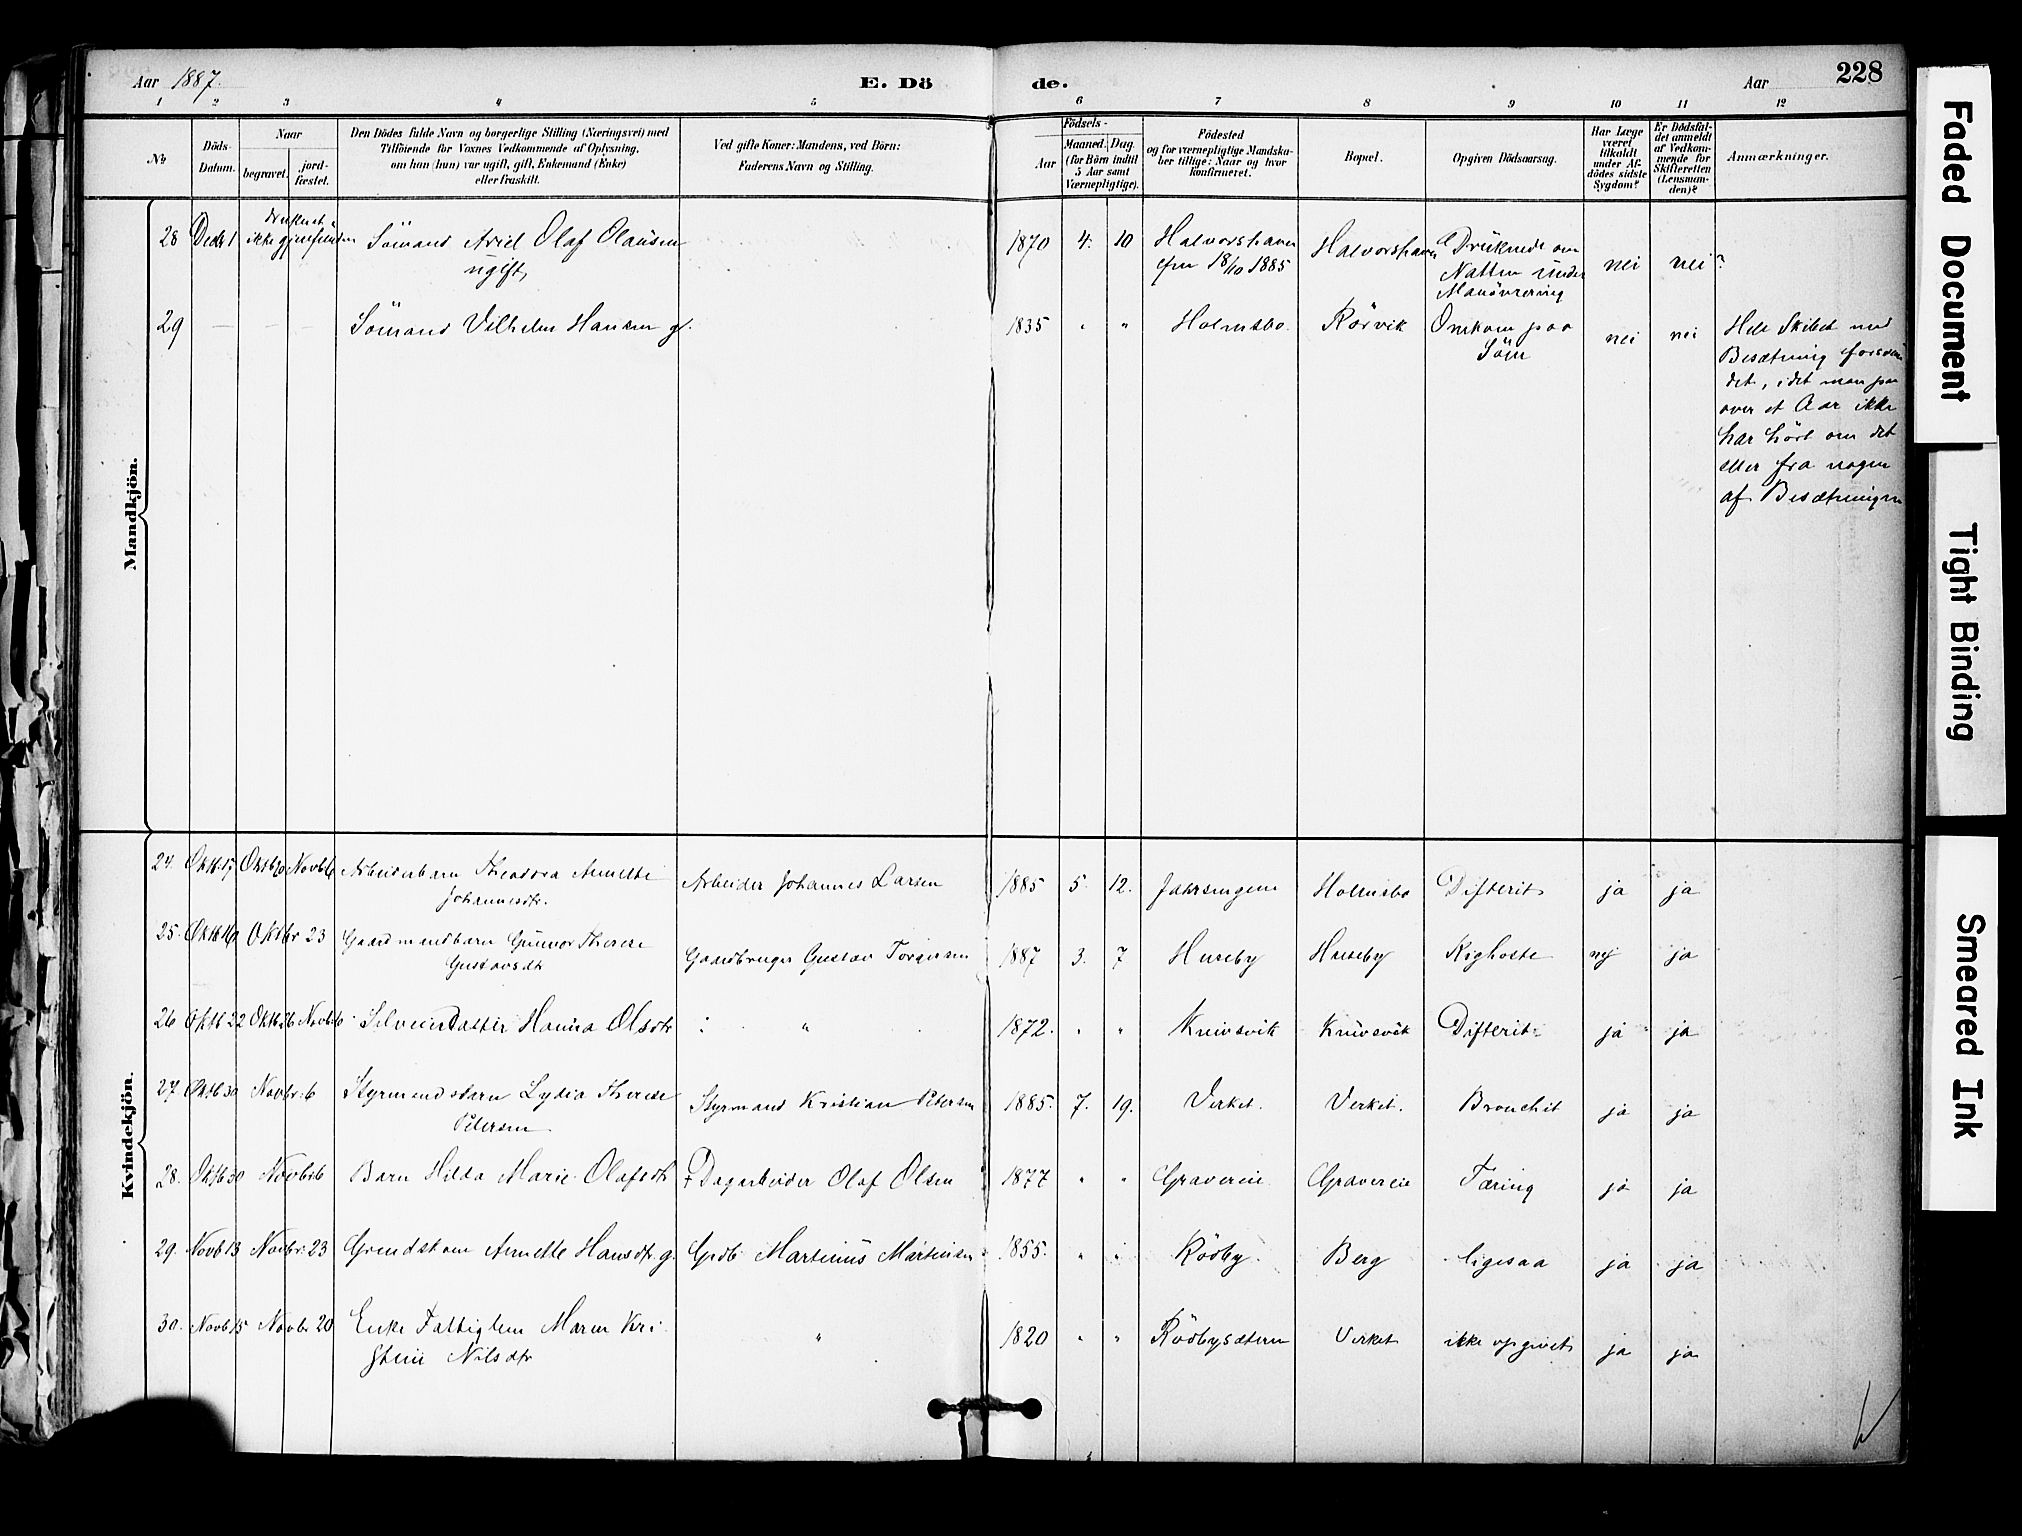 Aar 1887.
E. Dö
de.
Aar
228
1 2 3 4 5 6 7 8 9 10 11 12
No
Döds-Datum.
Naar
begravet.
jord-fæstet.
Den Dödes fulde Navn og borgerlige Stilling (Næringsvei) med
Tilföiende for Voxnes Vedkommende af Oplysning,
om han (hun) var ugift, gift, Enkemand (Enke)
eller fraskilt.
Ved gifte Koner: Mandens, ved Börn:
Faderens Navn og Stilling.
Födsels-
Aar
Maaned. Dag.
(for Börn indtil
5 Aar samt
Værnepligtige).
Födested
og for værnepligtige Mandska-
ber tillige: Naar og hvor
konfirmeret.
Bopæl.
Opgiven Dödsaarsag.
Har Læge
været
tilkaldt
under Af-
dödes sidste
Sygdom?
Er Dödsfal-
det anmeldt
af Vedkom-
mende for
Skifteretten
(Lensman-
den)?
Anmærkninger.
Mandkjön.
28 Decbr 1 druknet ikke gjenfunden Sömand Olaf Olausen 1870 4. 10 Halvorshavn Halvorshavn Druknede om nei nei?
ugift, 18/10 1885 Natten under
Manövrering
29 — — — Sömand Vilhelm Hansen g. 1835 " " Holmsbo. Rörvik Omkom paa nei nei Hele Skibet med
Söen Besætning forsvun
det, idet man paa
over et Aar ikke
har hört om det
eller fra nogen
af Besætningen
Kvindekjön.
24. Oktb. 17 Oktb 20 Novb 6 Arbeiderbarn Theodora Annette Arbeider Johannes Larsen 1885 5. 12. Holmsbo Difterit ja ja
Johannesdtr.
25. Oktb 16 Oktbr 23 Gaardmandsbarn Gunvor Therese Gaardbruger Gustav Torgersen 1887 3. 7 Huseby Huseby Kighoste nej ja
Gustavsdtr
26 Oktb 22 Oktb 26 Novb. 6 Datter Hanna Olsdtr " 1872. " " Knivsvik Knivsvik Difterit. ja ja
27 Oktb 30 Novbr. 6 Styrmandsbarn Lydia Therese Styrmand Kristian Petersen 1885. 7. 19. Verket. Verket. Bronchit ja ja
Petersen
28. Oktb 30 Novbr 6 Barn Hilda Marie Olafsdtr † Dagarbeider Olaf Olsen 1877 " " Graverein Graverein Tæring ja ja
29. Novb 13 Novbr. 23 Grundskone Annette Hansdtr. g. Grdb. Martinus Martinsen 1855. " " Rödby. Berg ligesaa ja ja
30. Novb 15 Novbr 20 Enke Fattiglem Maren Kri- " 1820 " " Rödbysæteren Verket ikke opgivet ja ja
stine Nilsdtr
Faded Document
Tight Binding
Smeared Ink